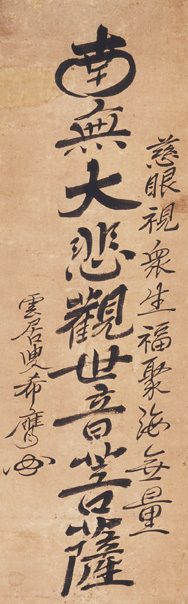 慈眼視衆生福聚海無量
南無大悲觀世音菩薩
雲居叟希膺书